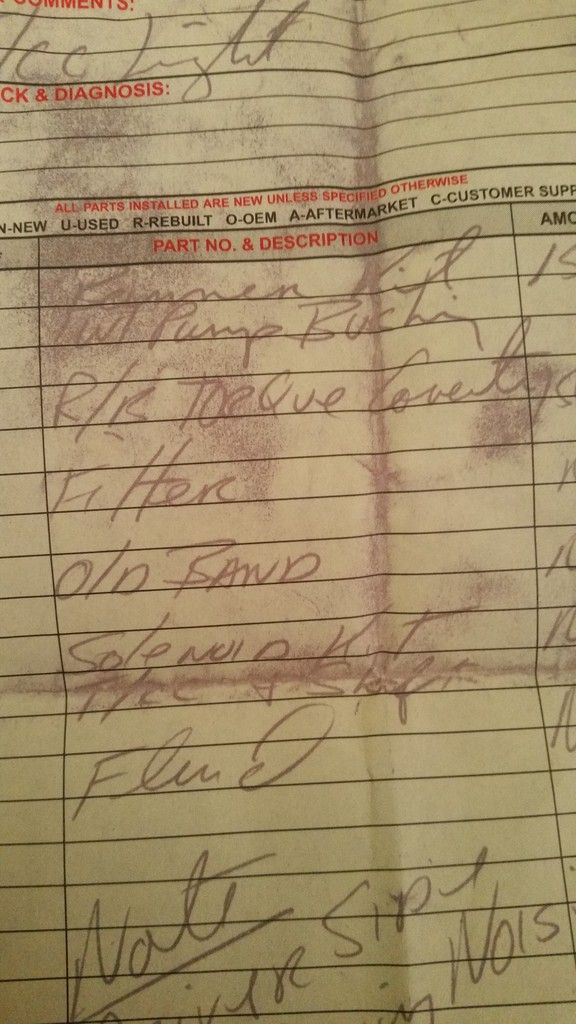 COMMENTS:
Light
CK & DIAGNOSIS:
ALL PARTS INSTALLED ARE NEW UNLESS SPECIFIED OTHERWISE
N-NEW U-USED R-REBUILT O-OEM A-AFTERMARKET C-CUSTOMER SUPP
PART NO. & DESCRIPTION AMO
Kit
Pump Buchin
R/R TORQue
Filter
O/D BAND
Solenoid Kit
T/cc + Shift
Fluid
Note
Driver Side
Nois